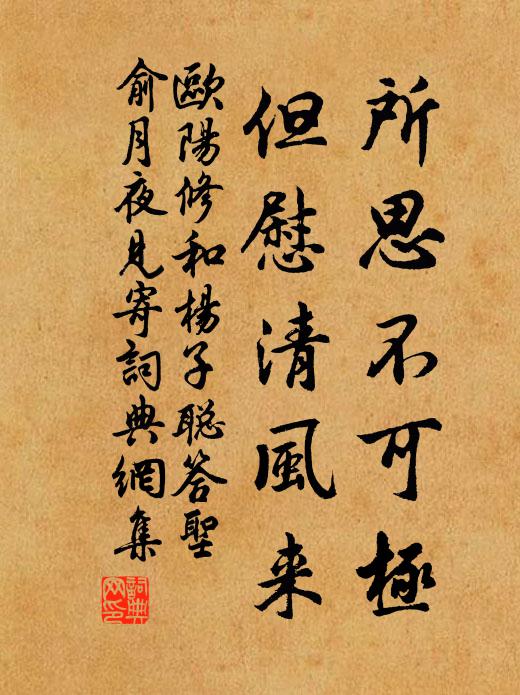 所思不可極
但慰清風来
歐陽修和楊子聡答聖
俞月夜見寄詞典網集
詞典网印